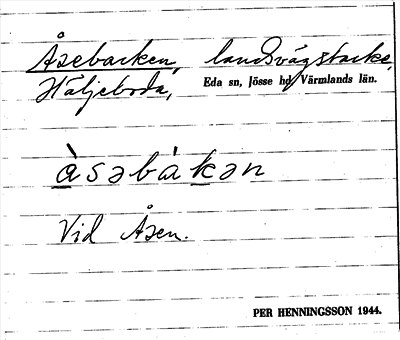 Åsebacken, landsvägsbacke,
Häljeboda, Eda sn, Jösse hd, Värmlands län.
å̀səbákən
Vid Åsen.
PER HENNINGSSON 1944.